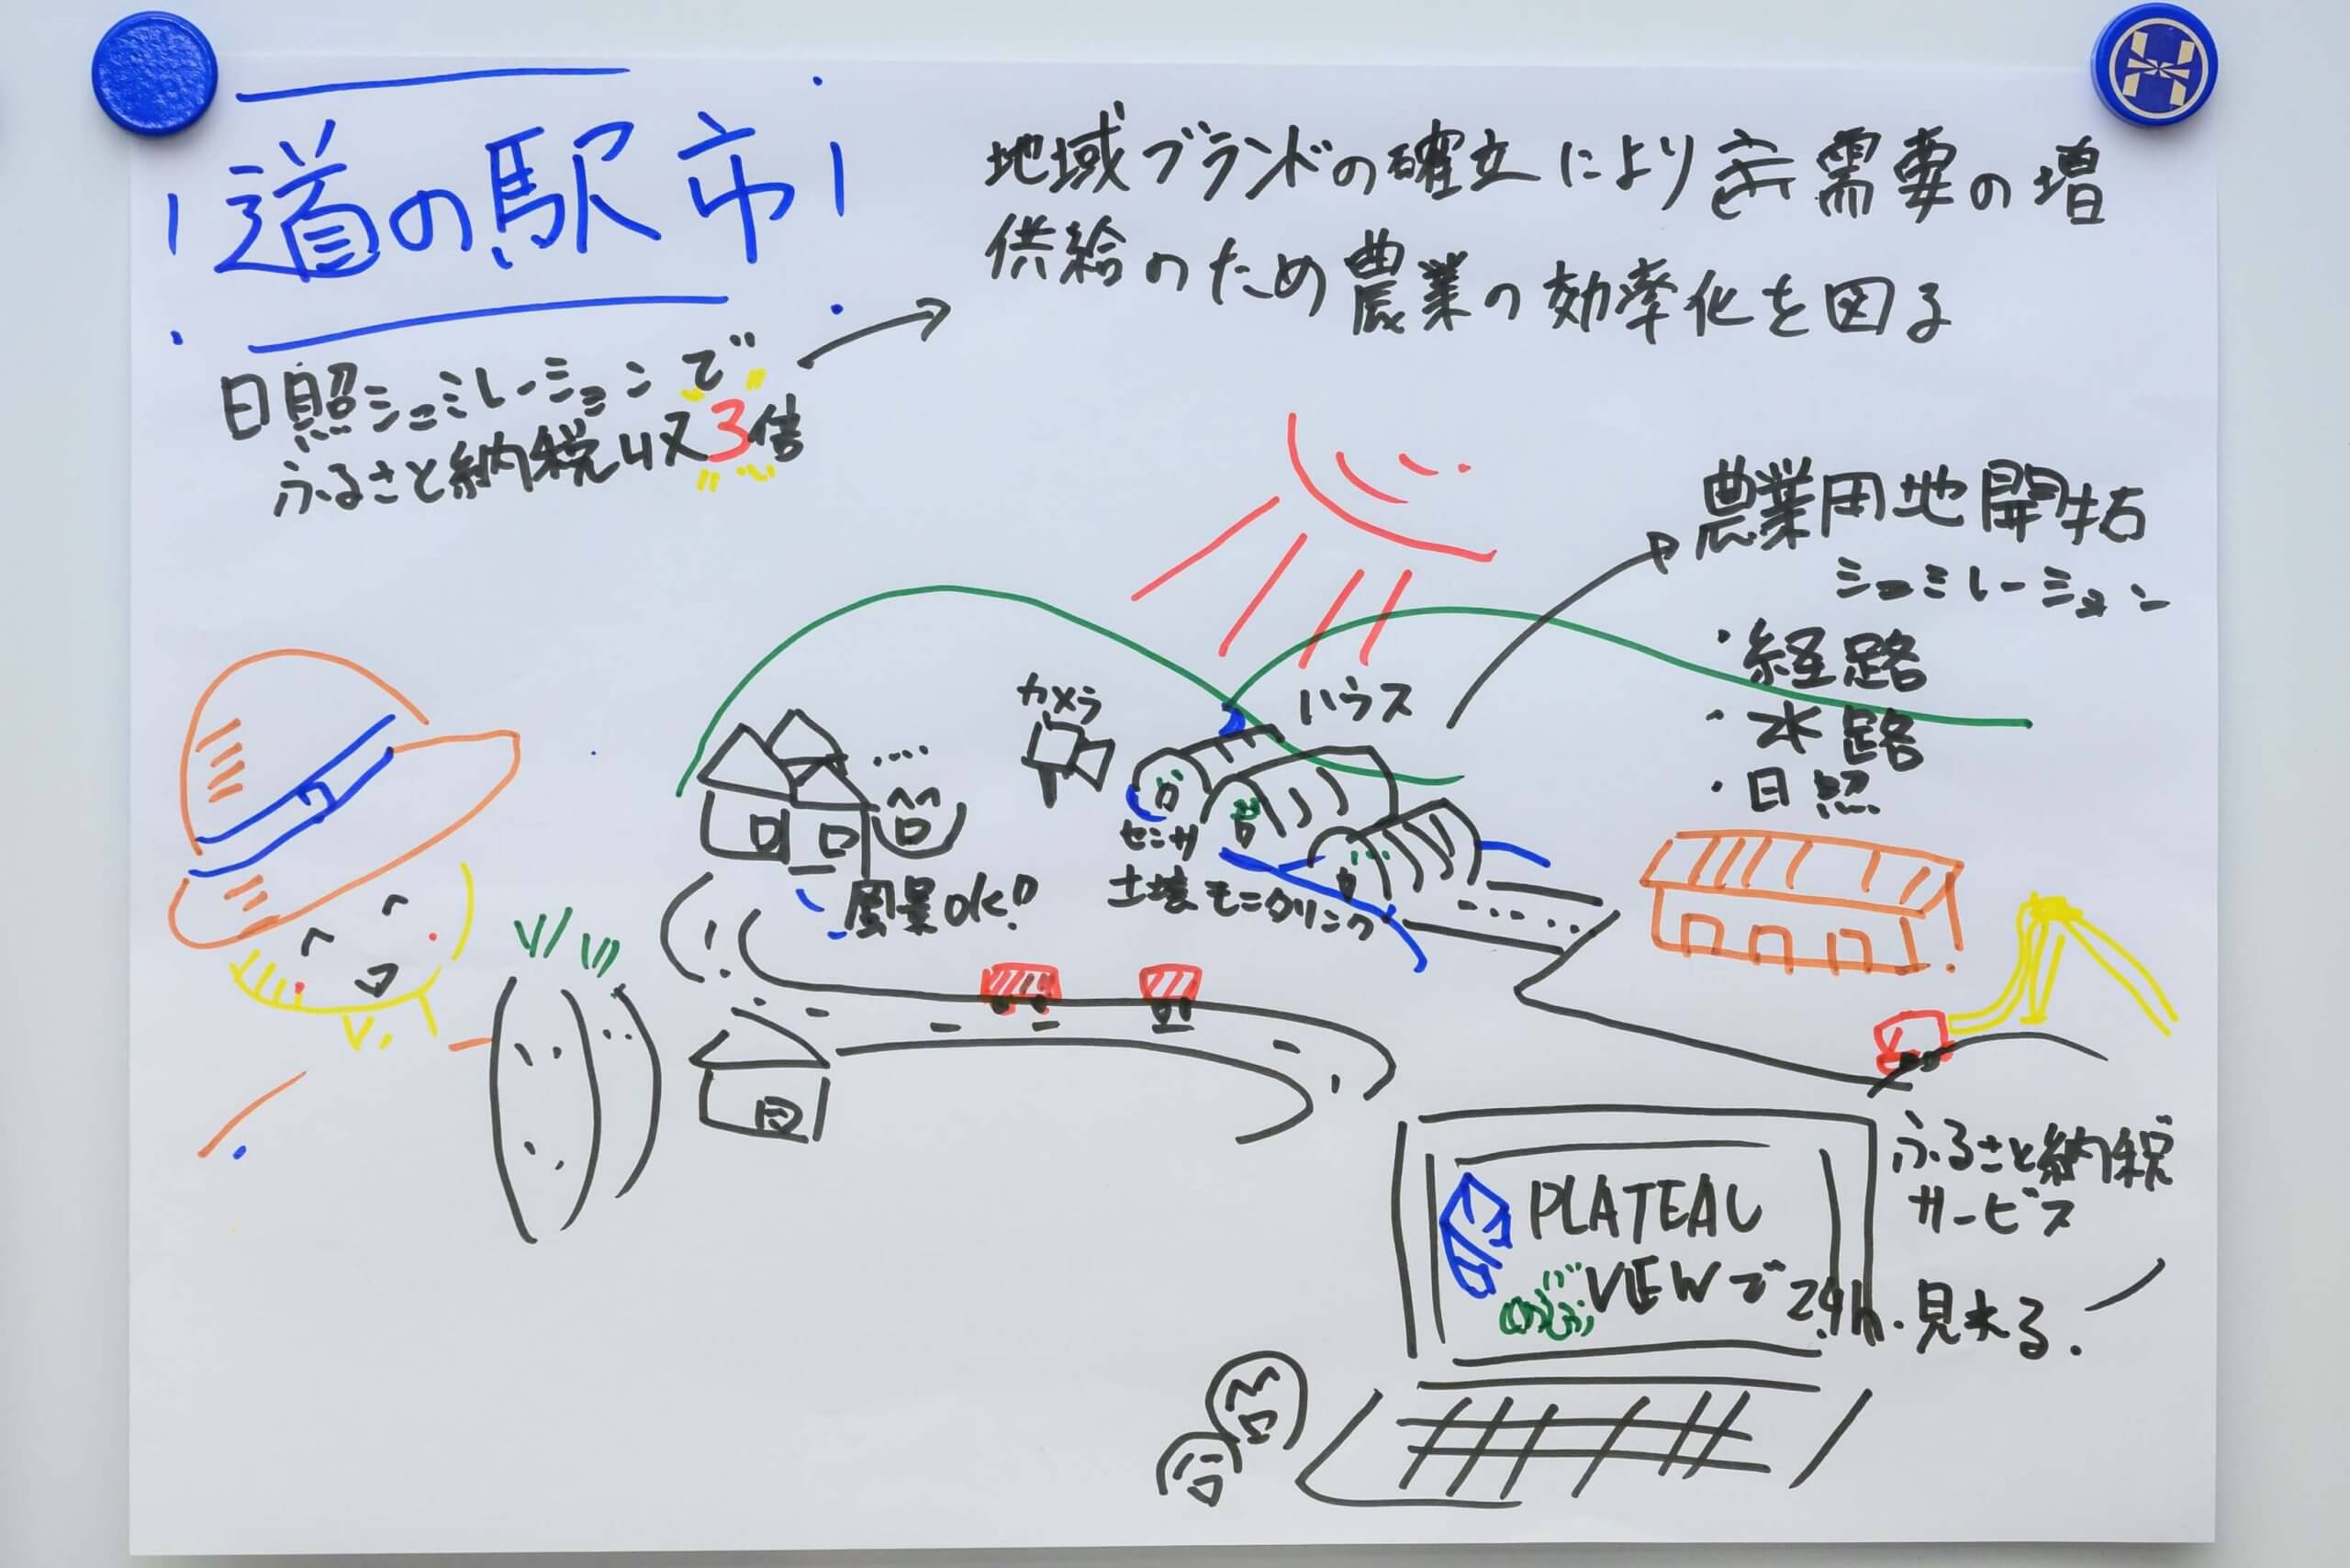 道の駅市
日照シュミレーションで
ふるさと納税収3倍
地域ブランドの確立により需要の増
供給のため農業の効率化を図る
農業用地開拓
シュミレーション
・経路
・水路
・日照
カメラ
ハウス
センサ
土壌モニタリング
風景OK!
PLATEAU
VIEWで24h.見れる.
ふるさと納税
サービス